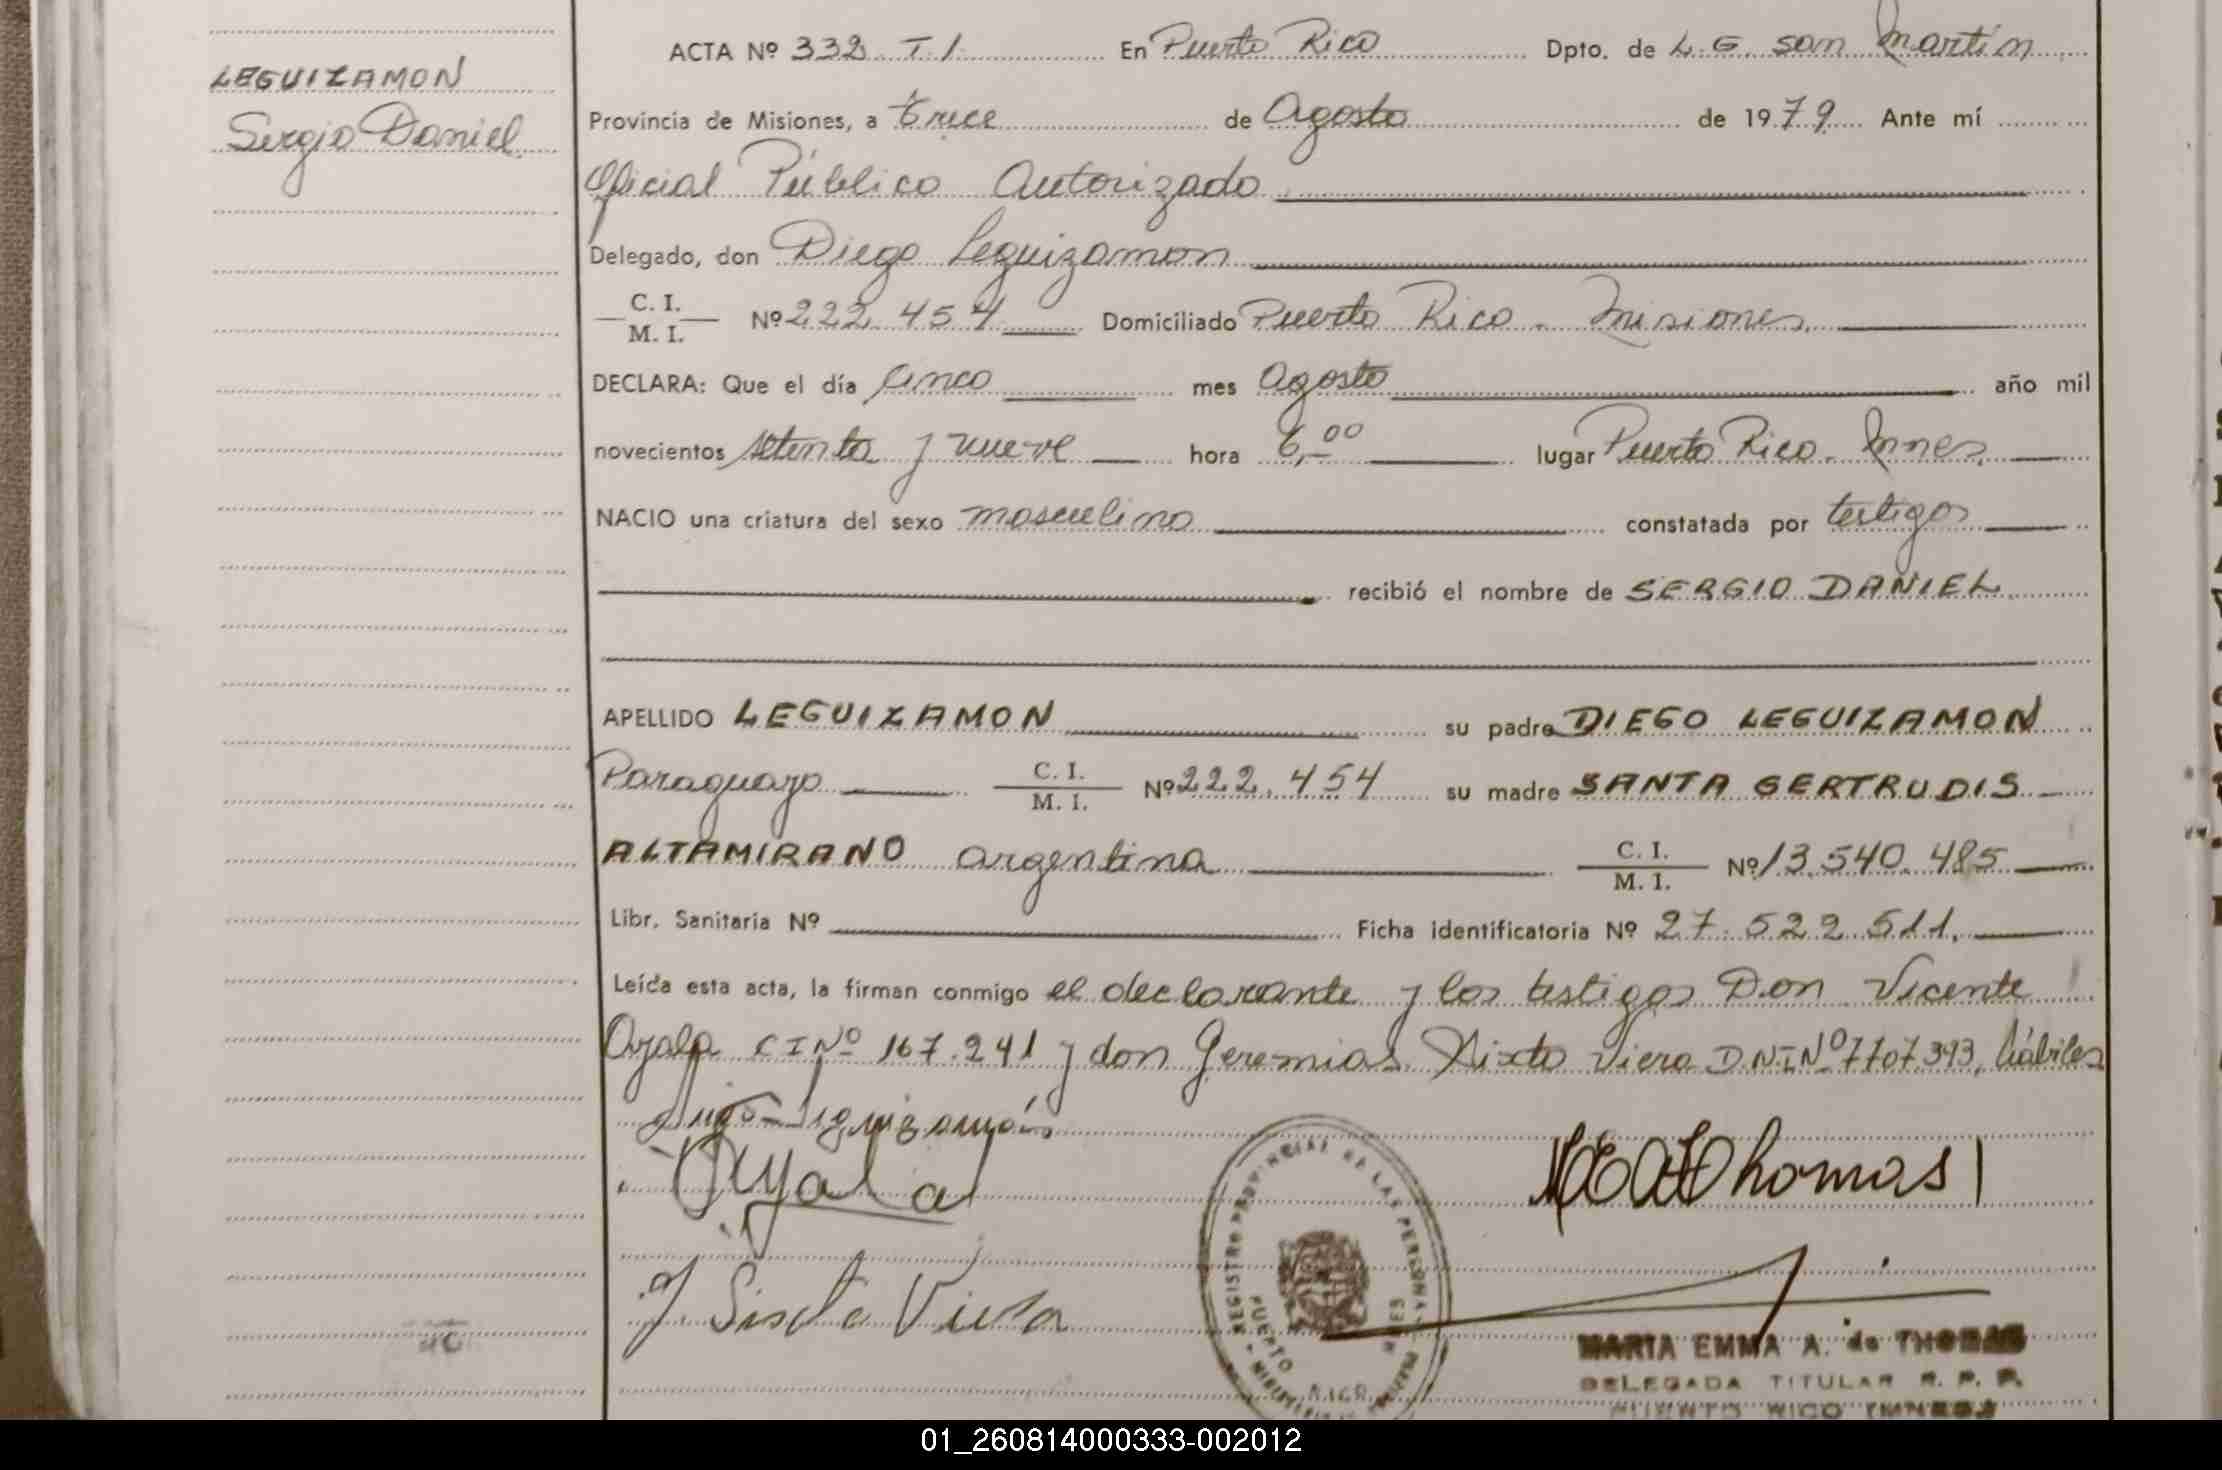 LEGUIZAMON
Sergio Daniel
ACTA Nº 332 T I En Puerto Rico Dpto. de L. G. San Martín
Provincia de Misiones, a trece de Agosto de 1979 Ante mí
Oficial Público Autorizado
Delegado, don Diego Leguizamon
C. I.
M. I. Nº 222.454 Domiciliado Puerto Rico. Misiones.
DECLARA: Que el día cinco mes Agosto año mil
novecientos setenta y nueve hora 6,00 lugar Puerto Rico. Mnes.
NACIO una criatura del sexo masculino constatada por testigos
recibió el nombre de SERGIO DANIEL
APELLIDO LEGUIZAMON su padre DIEGO LEGUIZAMON
Paraguayo C. I.
M. I. Nº 222.454 su madre SANTA GERTRUDIS
ALTAMIRANO argentina C. I.
M. I. Nº 13.540.485
Libr. Sanitaria Nº Ficha identificatoria Nº 27.522.511.
Leída esta acta, la firman conmigo el declarante y los testigos Don Vicente
Ayala C I Nº 167.241 y don Geremias Sixto Viera D.N.I Nº 7707393, hábiles
Ayala
REGISTRO PROVINCIAL DE LAS PERSONAS
PUERTO RICO
MARIA EMMA A. de THOMAS
DELEGADA TITULAR R. P. P.
PUERTO RICO (MNES)
01_260814000333-002012